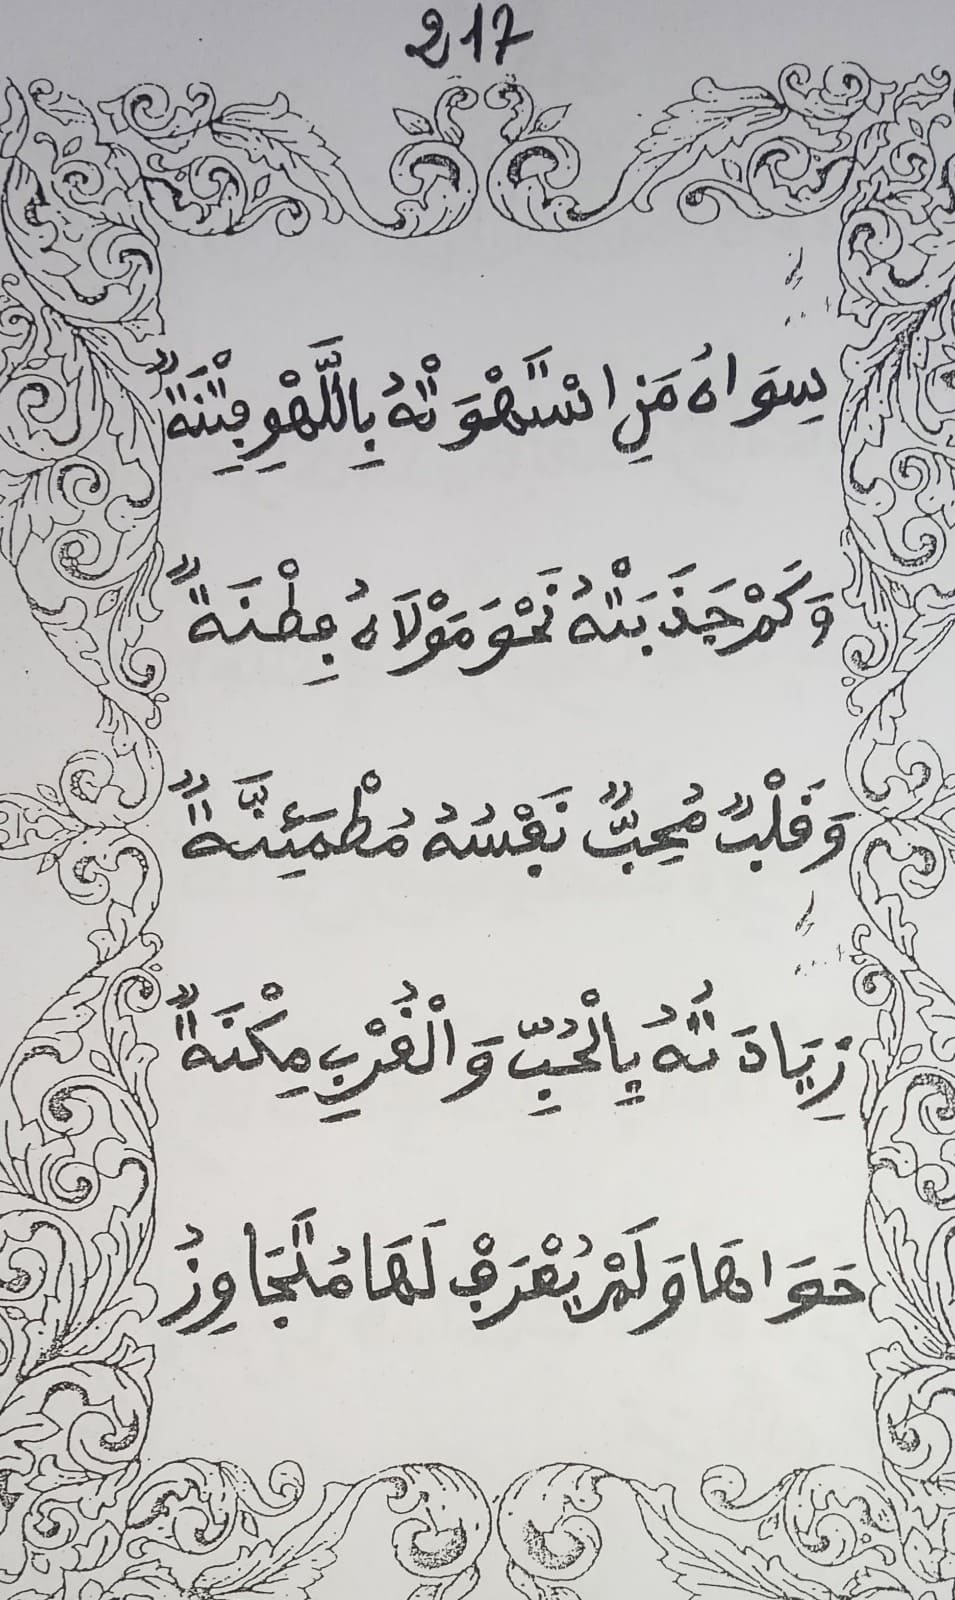 217
سِوَاهُ مَنِ اسْتَهْوَتْهُ بِاللَّهْوِ فِتْنَةٌ
وَكَمْ جَذَبَتْهُ نَحْوَ مَوْلَاهُ فِطْنَةٌ
وَقَلْبٌ مُحِبٌّ نَفْسُهُ مُطْمَئِنَّةٌ
زِيَادَتُهُ بِالْحُبِّ وَالْقُرْبِ مِكْنَةٌ
حَوَاهَا وَلَمْ يُعْرَفْ لَهَا مُتَجَاوِزُ